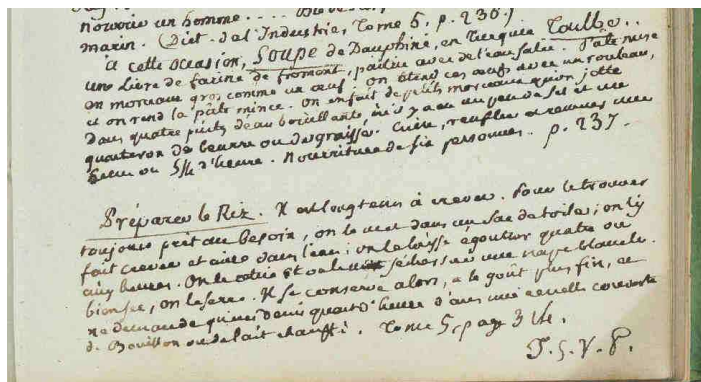 nourrir un homme
marin. (Dict. de l'Industrie, Tome 5. p. 236.)
à cette occasion, Soupe de Dauphiné, en Turquie Toulbo..
une Livre de farine de froment, paitrie avec de l'eau salée. Pâte mise
en morceaux gros comme un œuf, on étend ces œufs avec un rouleau,
et on rend la pâte mince. On en fait de petits morceaux qu'on jette
dans quatre pintes d'eau bouillante, où il y a eu un peu de sel et un
quarteron de beurre ou de graisse. Cuire, renfler et remuer une
heure ou 5/4 d'heure. Nourriture de six personnes. p. 237.
Préparer le Riz. Il est longtems à crever. Pour le trouver
toujours prêt au besoin, on le met dans un sac de toile; on l'y
fait crever et cuire dans l'eau; on le laisse égoutter quatre ou
cinq heures. On le retire et on le met sécher sur une nape blanche.
bien sec, on le serre. Il se conserve alors, a le goût plus fin, et
ne demande qu'un demi quart d'heure dans une écuelle couverte
de Bouillon ou de lait chauffé. Tome 5, page 314.
T. S. V. P.